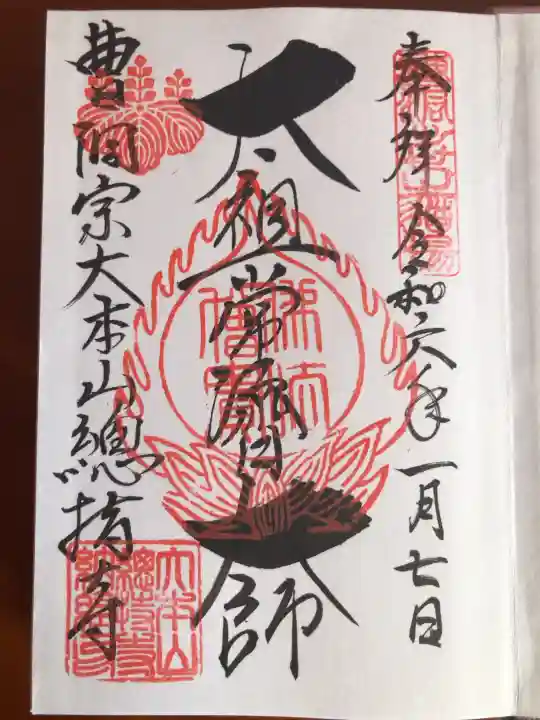 奉拝 令和六年一月七日
太祖常済大師
曹洞宗大本山總持寺
佛法僧寶
大本山
總持寺